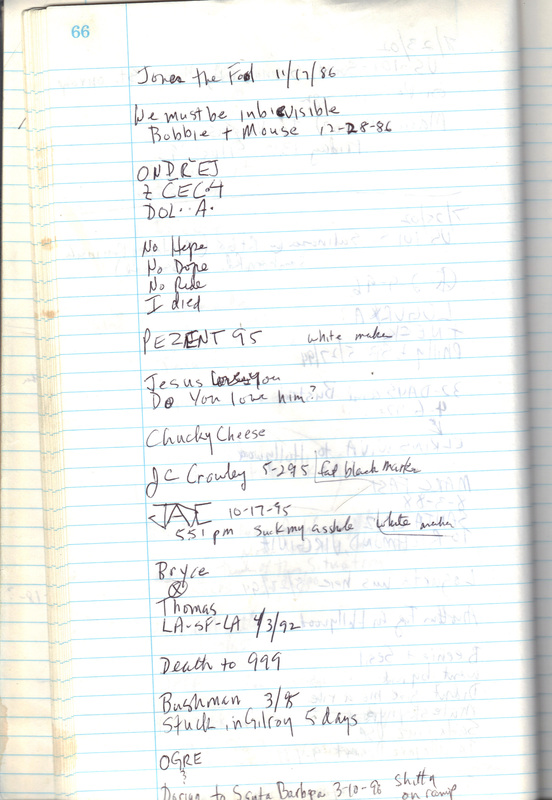 66
Jones the Fool 11/17/86
We must be inbievisible
Bobbie + Mouse 12-28-86
ONDREJ
Z CECH
DOL..A.
No Hope
No Dope
No Ride
I died
PEZENT 95 white maker
Jesus loves you
Do You love him?
Chucky Cheese
JC Crowley 5-295 fat black marker
JAE 10-17-95
551 pm Suck my asshole white maker
Bryce
Thomas
LA-SF-LA 4/3/92
Death to 999
Bushman 3/8
Stuck in Gilroy 5 days
OGRE
?
to Santa Barbara 3-10-96 shitty
on ramp